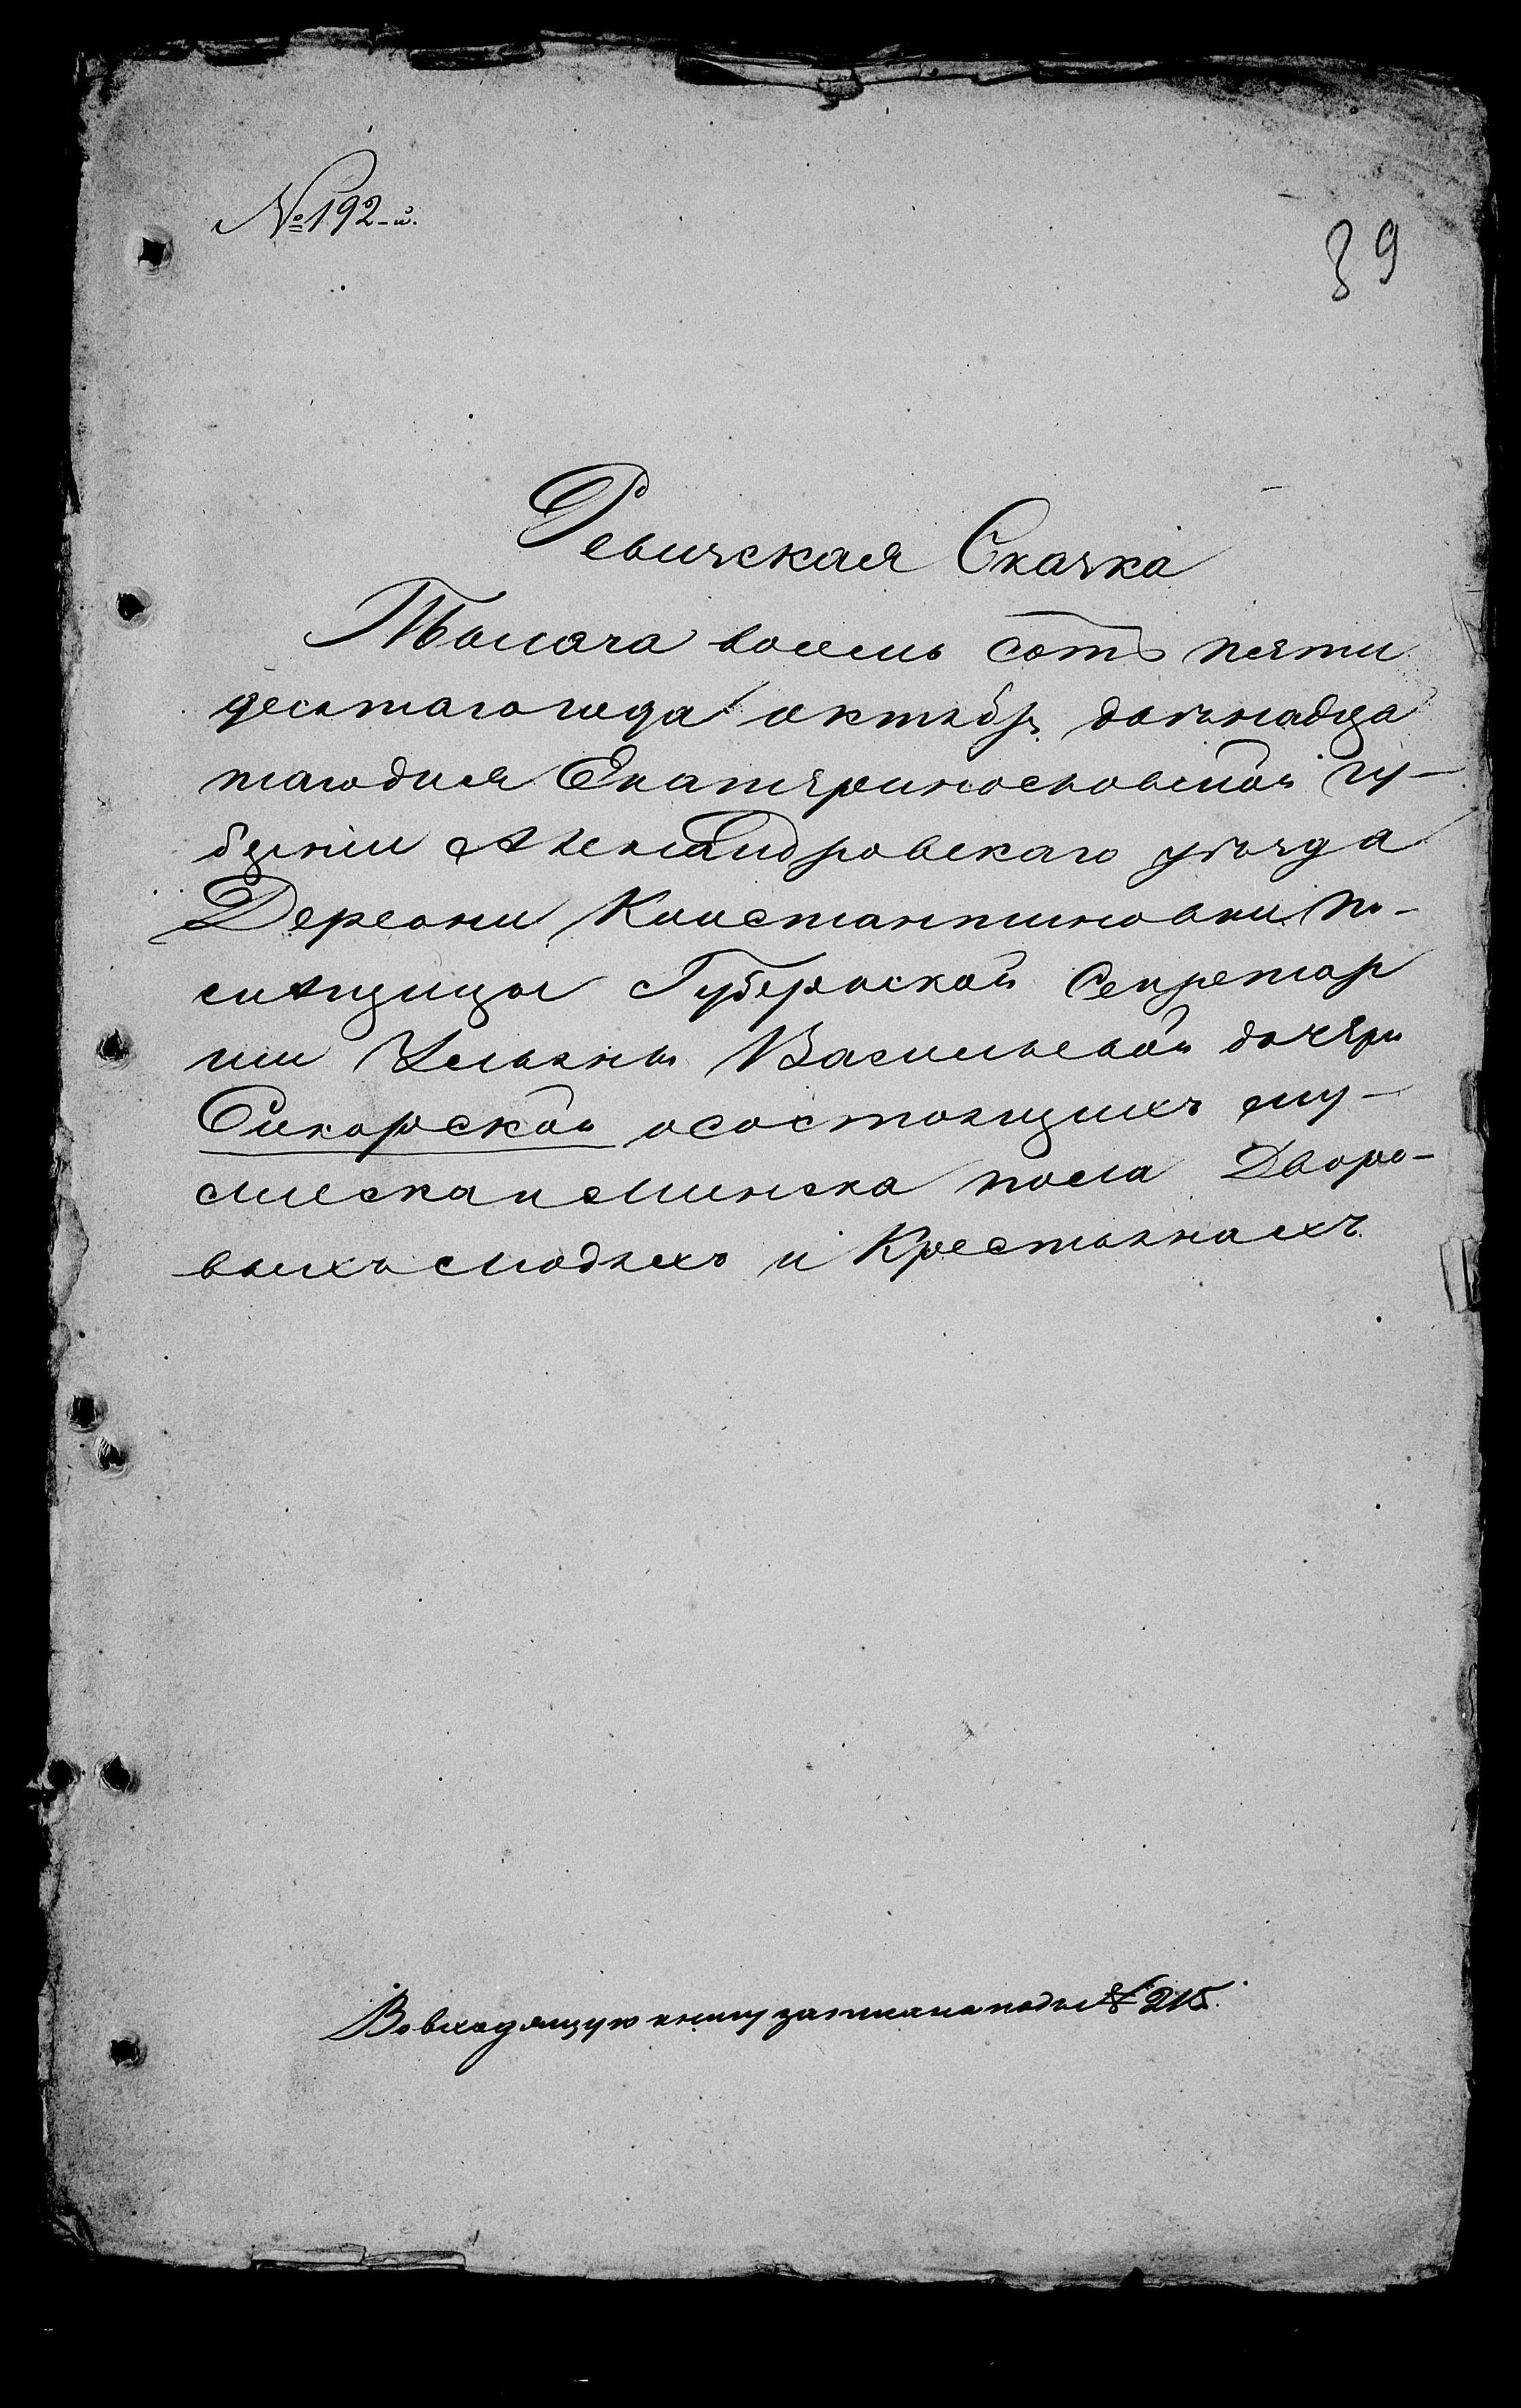 № 192-й.
39
Ревизская Сказка
Тысяча восемь сотъ пяти
десятагогода октября двѣнадца
тагодня Екатеринославской гу-
бернии Александровскаго уѣзда
Деревни Константиновки По-
мѣщицы Губернской Секретар
ши Ульяны Васильевой дочери
Сикорской осостоящихъ му-
жеска иженска пола Дворо-
выхъ людяхъ и Крестьянахъ
Вовходящую книгу записана подъ № 215.